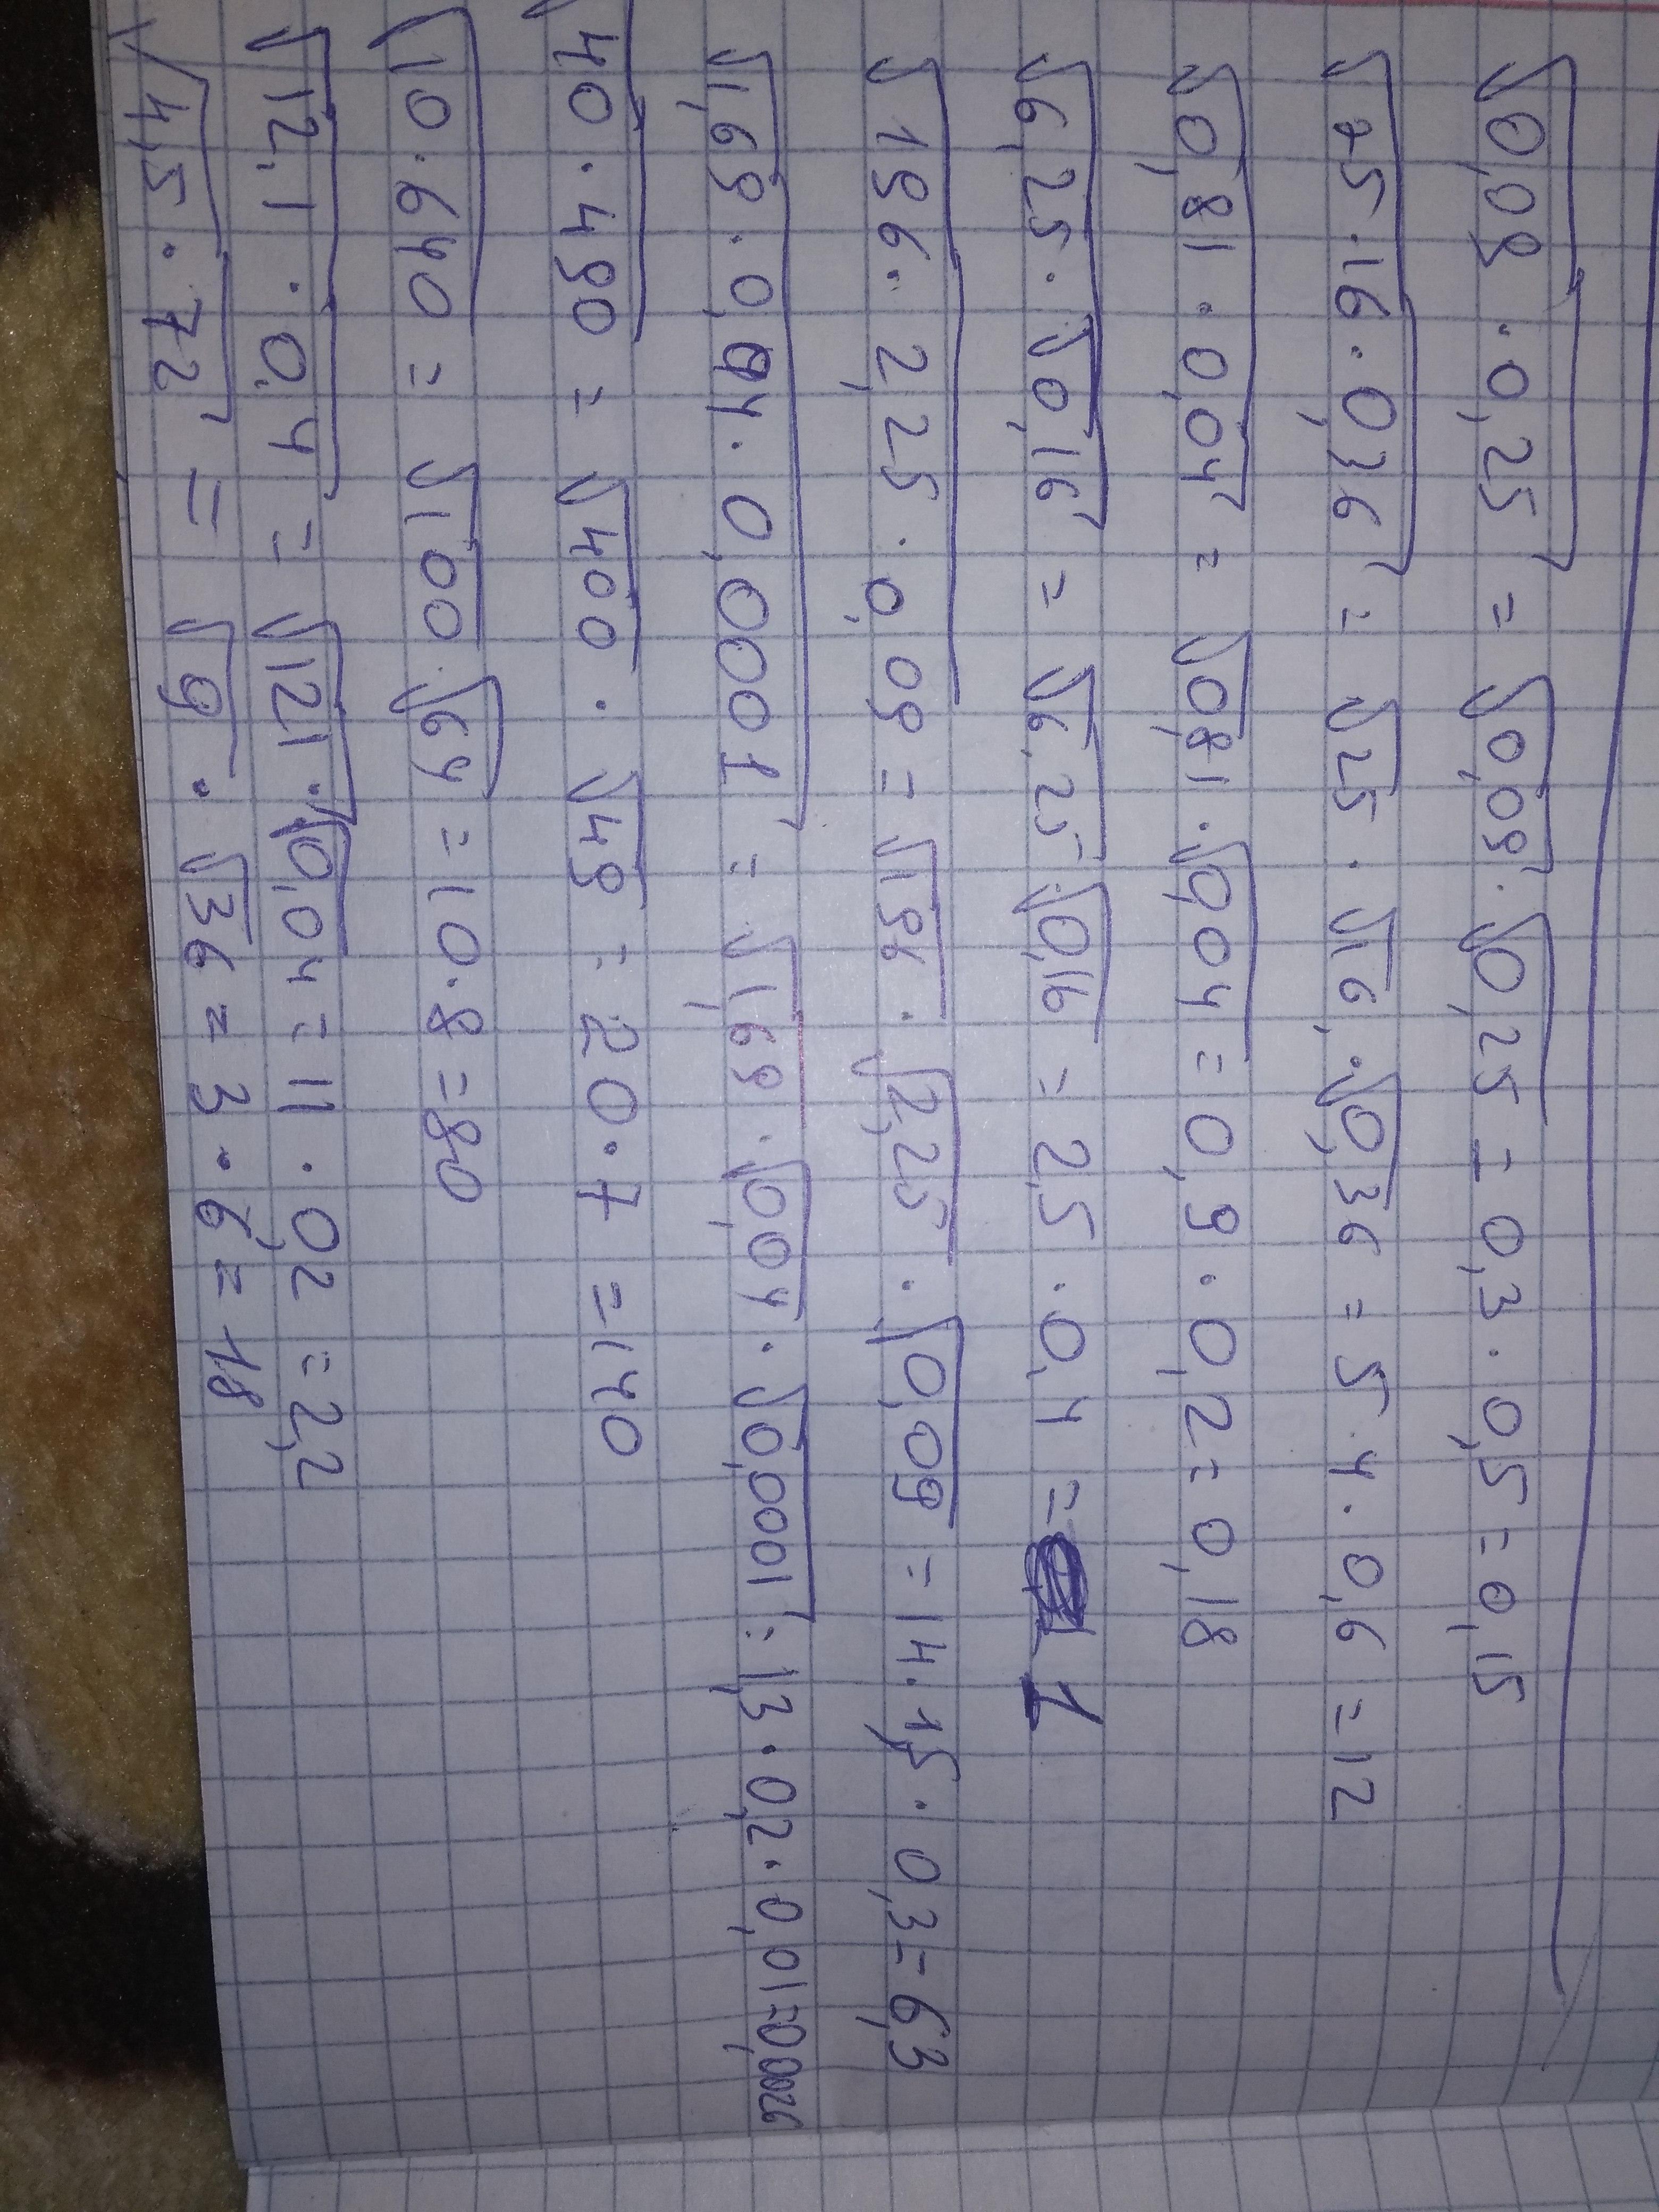 √0,09 · 0,25 = √0,09 · √0,25 = 0,3 · 0,5 = 0,15
√25 · 16 · 0,36 = √25 · √16 · √0,36 = 5 · 4 · 0,6 = 12
√0,81 · 0,04 = √0,81 · √0,04 = 0,9 · 0,2 = 0,18
√6,25 · √0,16 = √6,25 · √0,16 = 2,5 · 0,4 = 1
√196 · 2,25 · 0,09 = √196 · √2,25 · √0,09 = 14 · 1,5 · 0,3 = 6,3
√1,69 · 0,04 · 0,0001 = √1,69 · √0,04 · √0,0001 = 1,3 · 0,2 · 0,01 = 0,0026
√40 · 490 = √400 · √49 = 20 · 7 = 140
√10 · 640 = √100 · √64 = 10 · 8 = 80
√12,1 · 0,4 = √121 · √0,04 = 11 · 0,2 = 2,2
√4,5 · 72 = √9 · √36 = 3 · 6 = 18